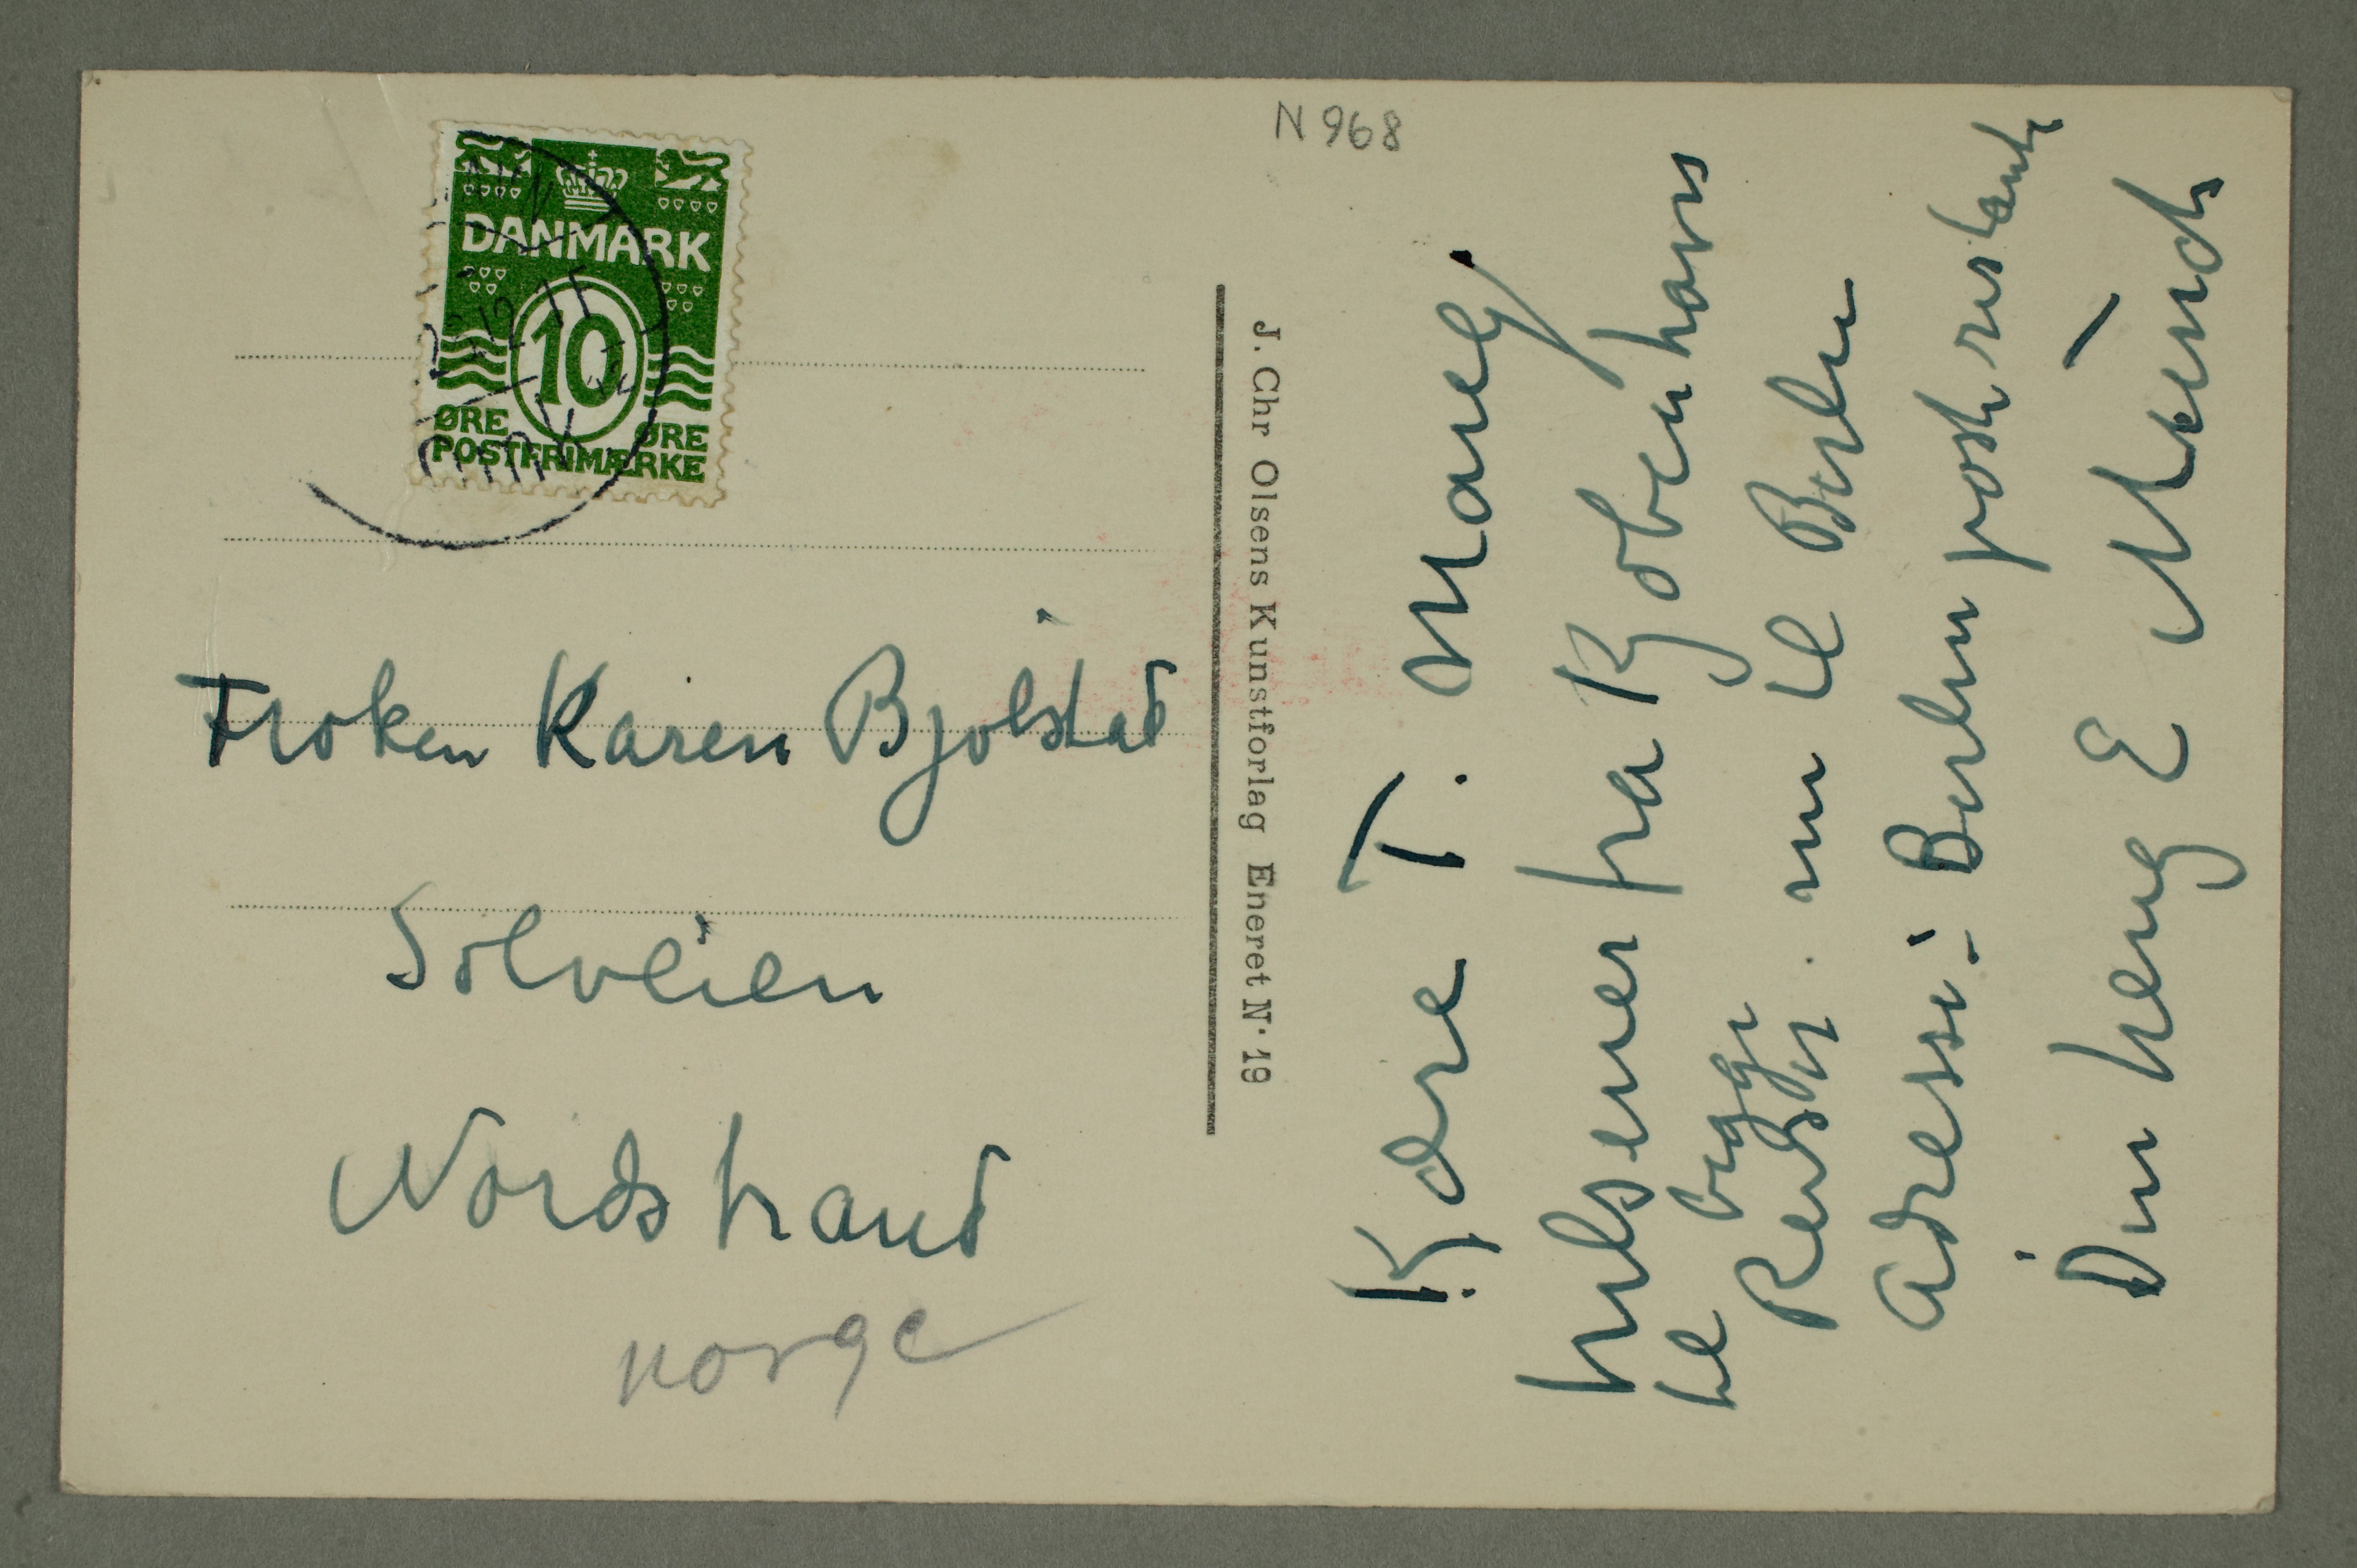 N 968
DANMARK
10
ØRE ØRE
POSTFRIMÆRKE
J. Chr Olsens Kunstforlag Eneret N· 19
Frøken Karen Bjølstad
Solveien
Nordstrand
Norge
Kære T. Mange
hilsener fra Kjøbenhavn
til begge
Reiser nu til Berlin
Adresse: Berlin poste restante
Din heng E Munch